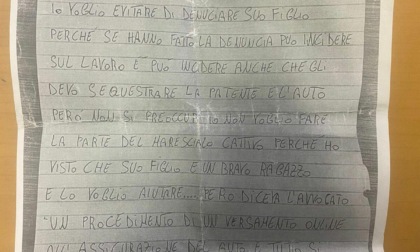 IO VOGLIO EVITARE DI DENUCIARE SUO FIGLIO
PERCHÉ SE HANNO FATTO LA DENUNCIA PUÒ INCIDERE
SUL LAVORO E PUÒ INCIDERE ANCHE CHE GLI
DEVO SEQUESTRARE LA PATENTE E L'AUTO
PERÒ NON SI PREOCCUPI IO NON VOGLIO FARE
LA PARTE DEL MARESCIALO CATTIVO PERCHÉ HO
VISTO CHE SUO FIGLIO È UN BRAVO RAGAZZO
E LO VOGLIO AIUTARE.... PERÒ DICEVA L'AVVOCATO
"UN PROCEDIMENTO DI UN VERSAMENTO ONLINE
ALL'ASSICURAZIONE DEL AUTO E TUTTO SI